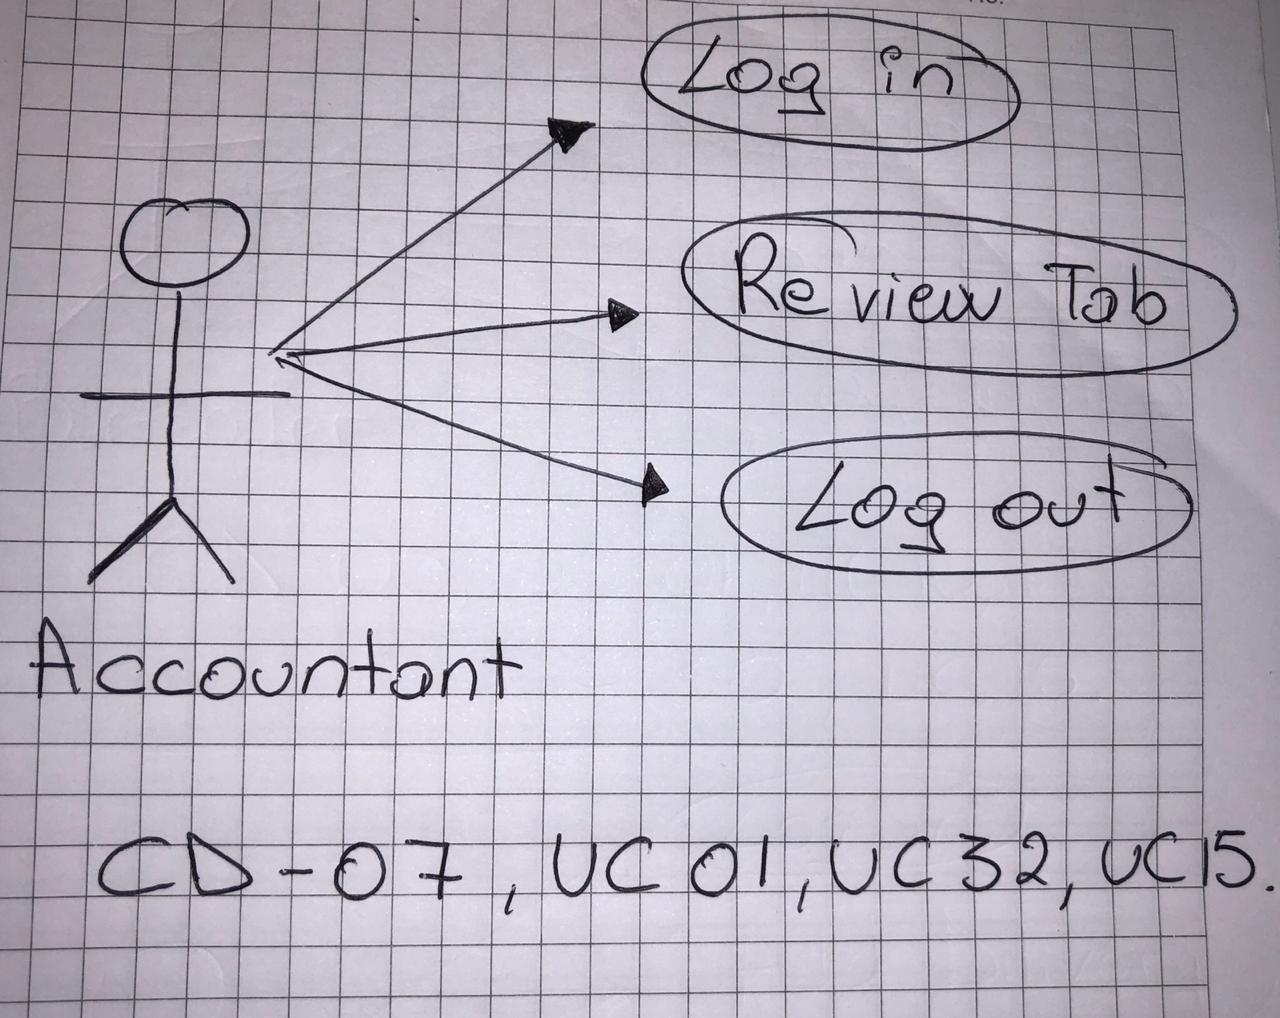 Log in
Review Tab
Log out
Accountant
CD-07, UC 01, UC 32, UC15.